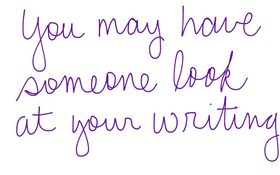 You may have
someone look
at your writing